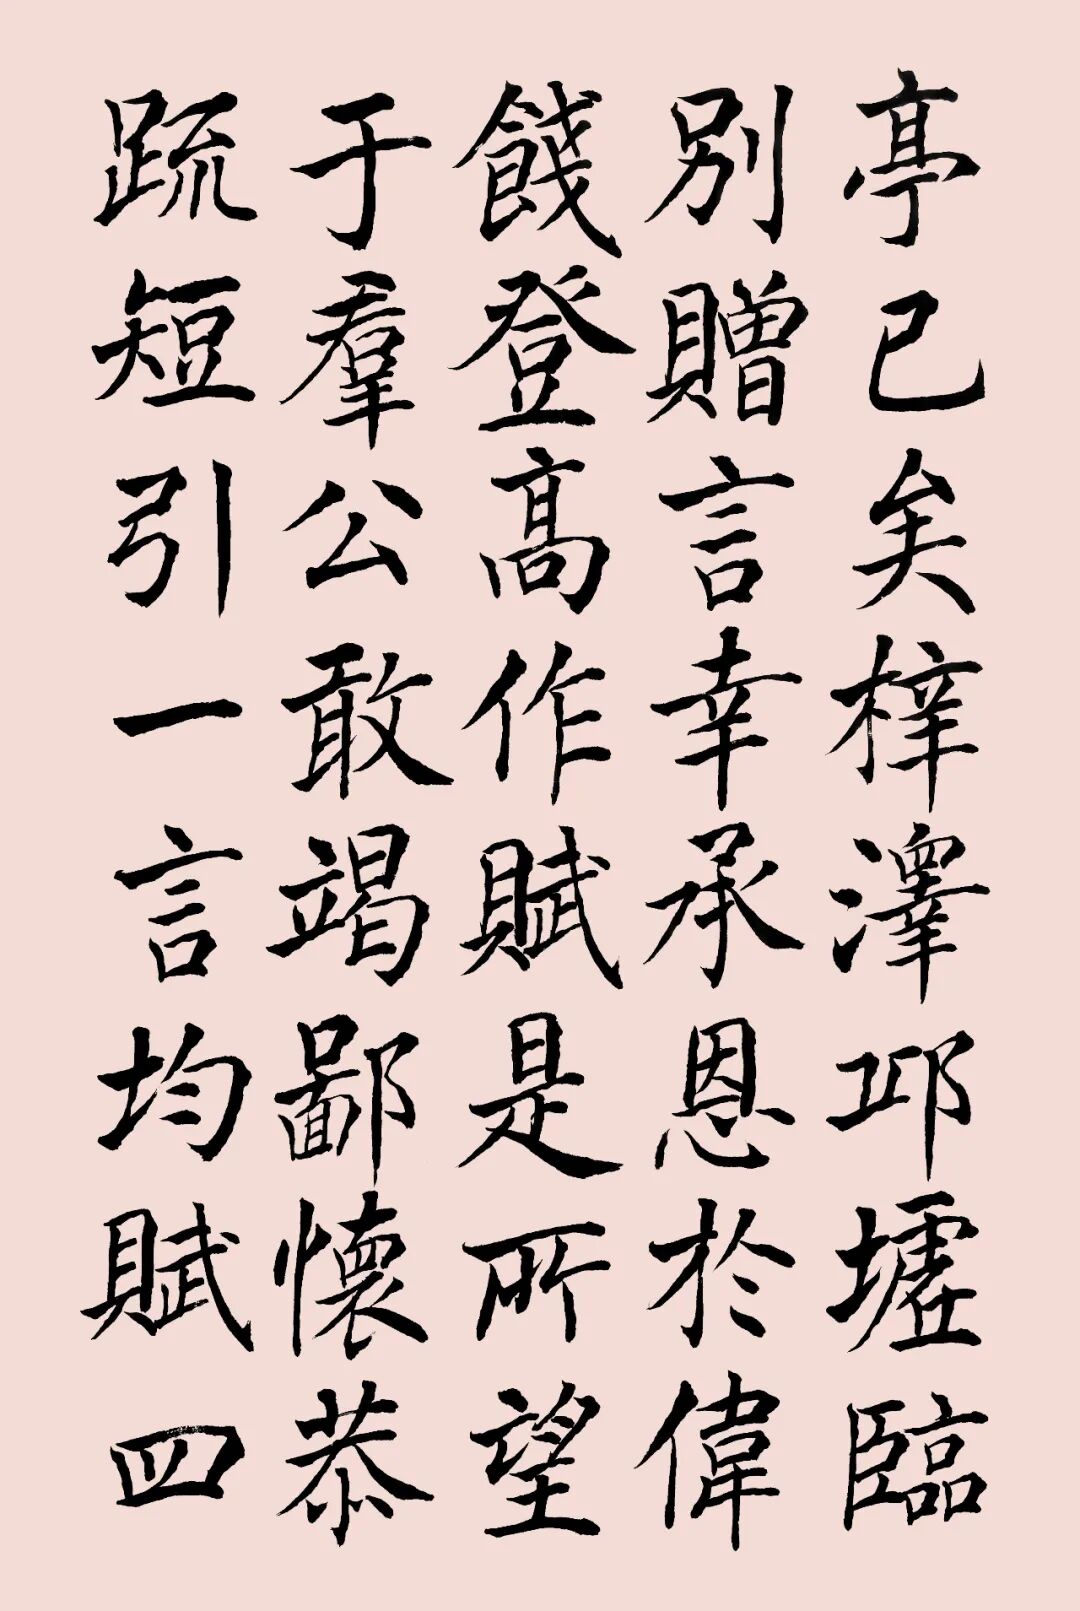 亭已矣梓澤邱墟臨
別贈言幸承恩於偉
餞登高作賦是所望
于羣公敢竭鄙懷恭
疏短引一言均賦四